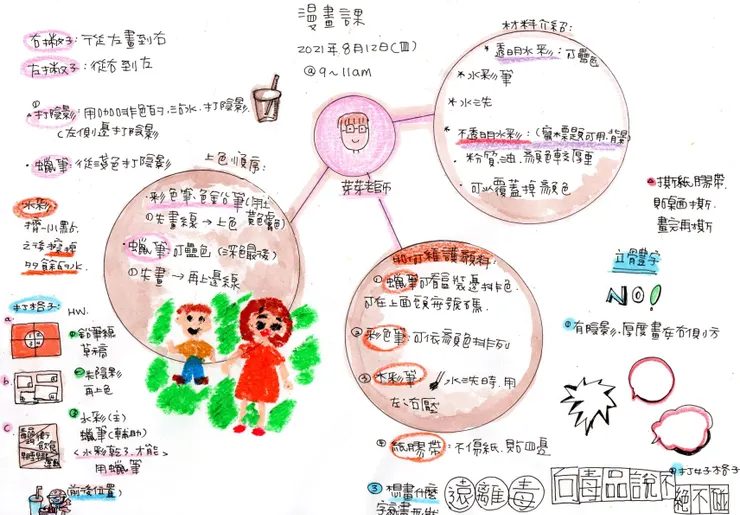 漫畫課
2021年8月12日(四)
@9~11am
芽芽老師
右撇子:從左畫到右
左撇子:從右到左
①打陰影:用咖啡色的,沾水,打陰影.
(左側邊打陰影)
蠟筆:從淺色打陰影
水彩:
擠一小點.
之後擦掉
多餘的水.
打格子:
HW.
a.
①鉛筆線
草稿
b.
②先陰影
再上色
c.
③水彩(主)
蠟筆(輔助)
<水彩乾了,才能
用蠟筆
前後位置
上色順序:
彩色筆.色鉛筆
①先畫線→上色
蠟筆:可疊色(深色最後)
①先畫→再上邊線
材料介紹:
*透明水彩:可疊色
*水彩筆
*水洗
不透明水彩:(寫標題可用.背景)
粉質.油.顏色較厚重
可以覆蓋掉顏色
如何維護顏料:
①蠟筆
可在上面
②彩色筆:可依顏色排列
③水彩筆
水洗時.用
左右壓
④紙膠帶:不傷紙.貼四邊
⑤想畫什麼
字就畫
撕紙膠帶
貼桌面撕.
畫完再撕
立體字
NO!
①有陰影.厚度畫在右側方
打好格子
遠離毒
向毒品說不
絕不碰